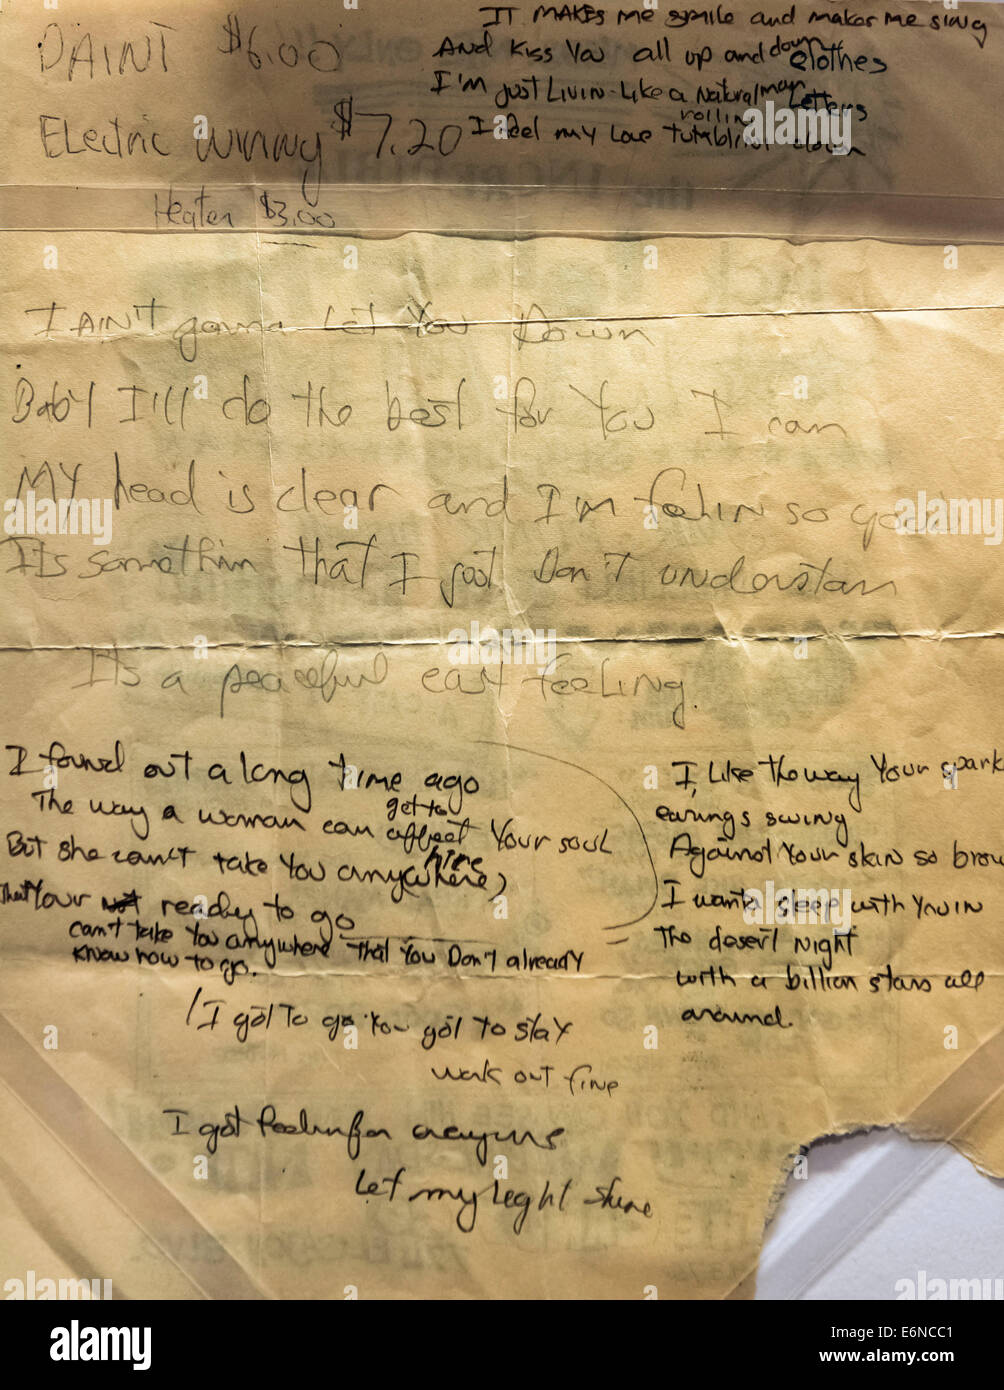 PAINT $6.00
Electric wiring $7.20
Heater $3.00
IT MAKES me smile and makes me sing
And Kiss You all up and down
clothes
I'm just Livin-Like a Natural man
Letters
rollin
I feel my love tumblin down
I AIN'T gonna Let You Down
BabY I'll do the best for You I can
MY head is clear and I'm feelin so good
Its somethin that I just Don't understan
Its a peaceful easy feeling.
I found out a long time ago
The way a woman can affect Your soul
get to
But she can't take You anywhere)
hire
That Your not ready to go
can't take You anywhere that You Don't already
know how to go.
I Like the way Your spark
earings swing
Against Your skin so brow
I wanta sleep with You in
The desert Night
with a billion stars all
around.
I got To go You got to stay
work out fine
I got feelin for
Let my Light shine
a alamy stock photo
alamy
Image ID: E6NCC1
www.alamy.com